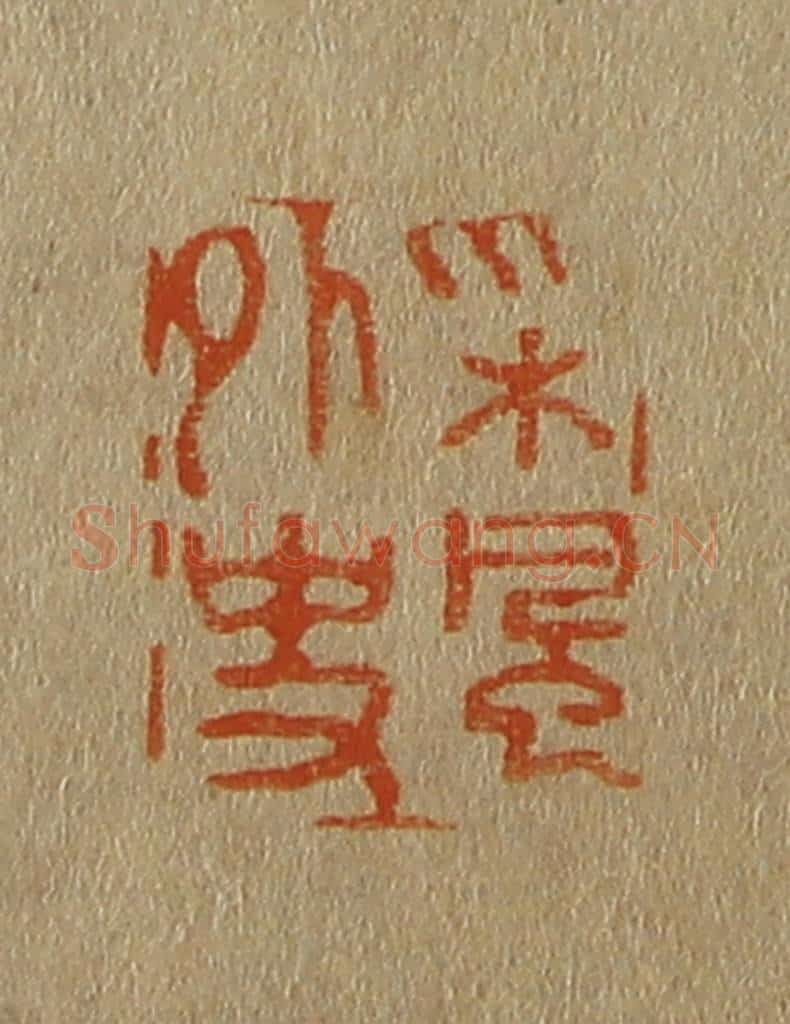 采
外史
Shufawang.CN